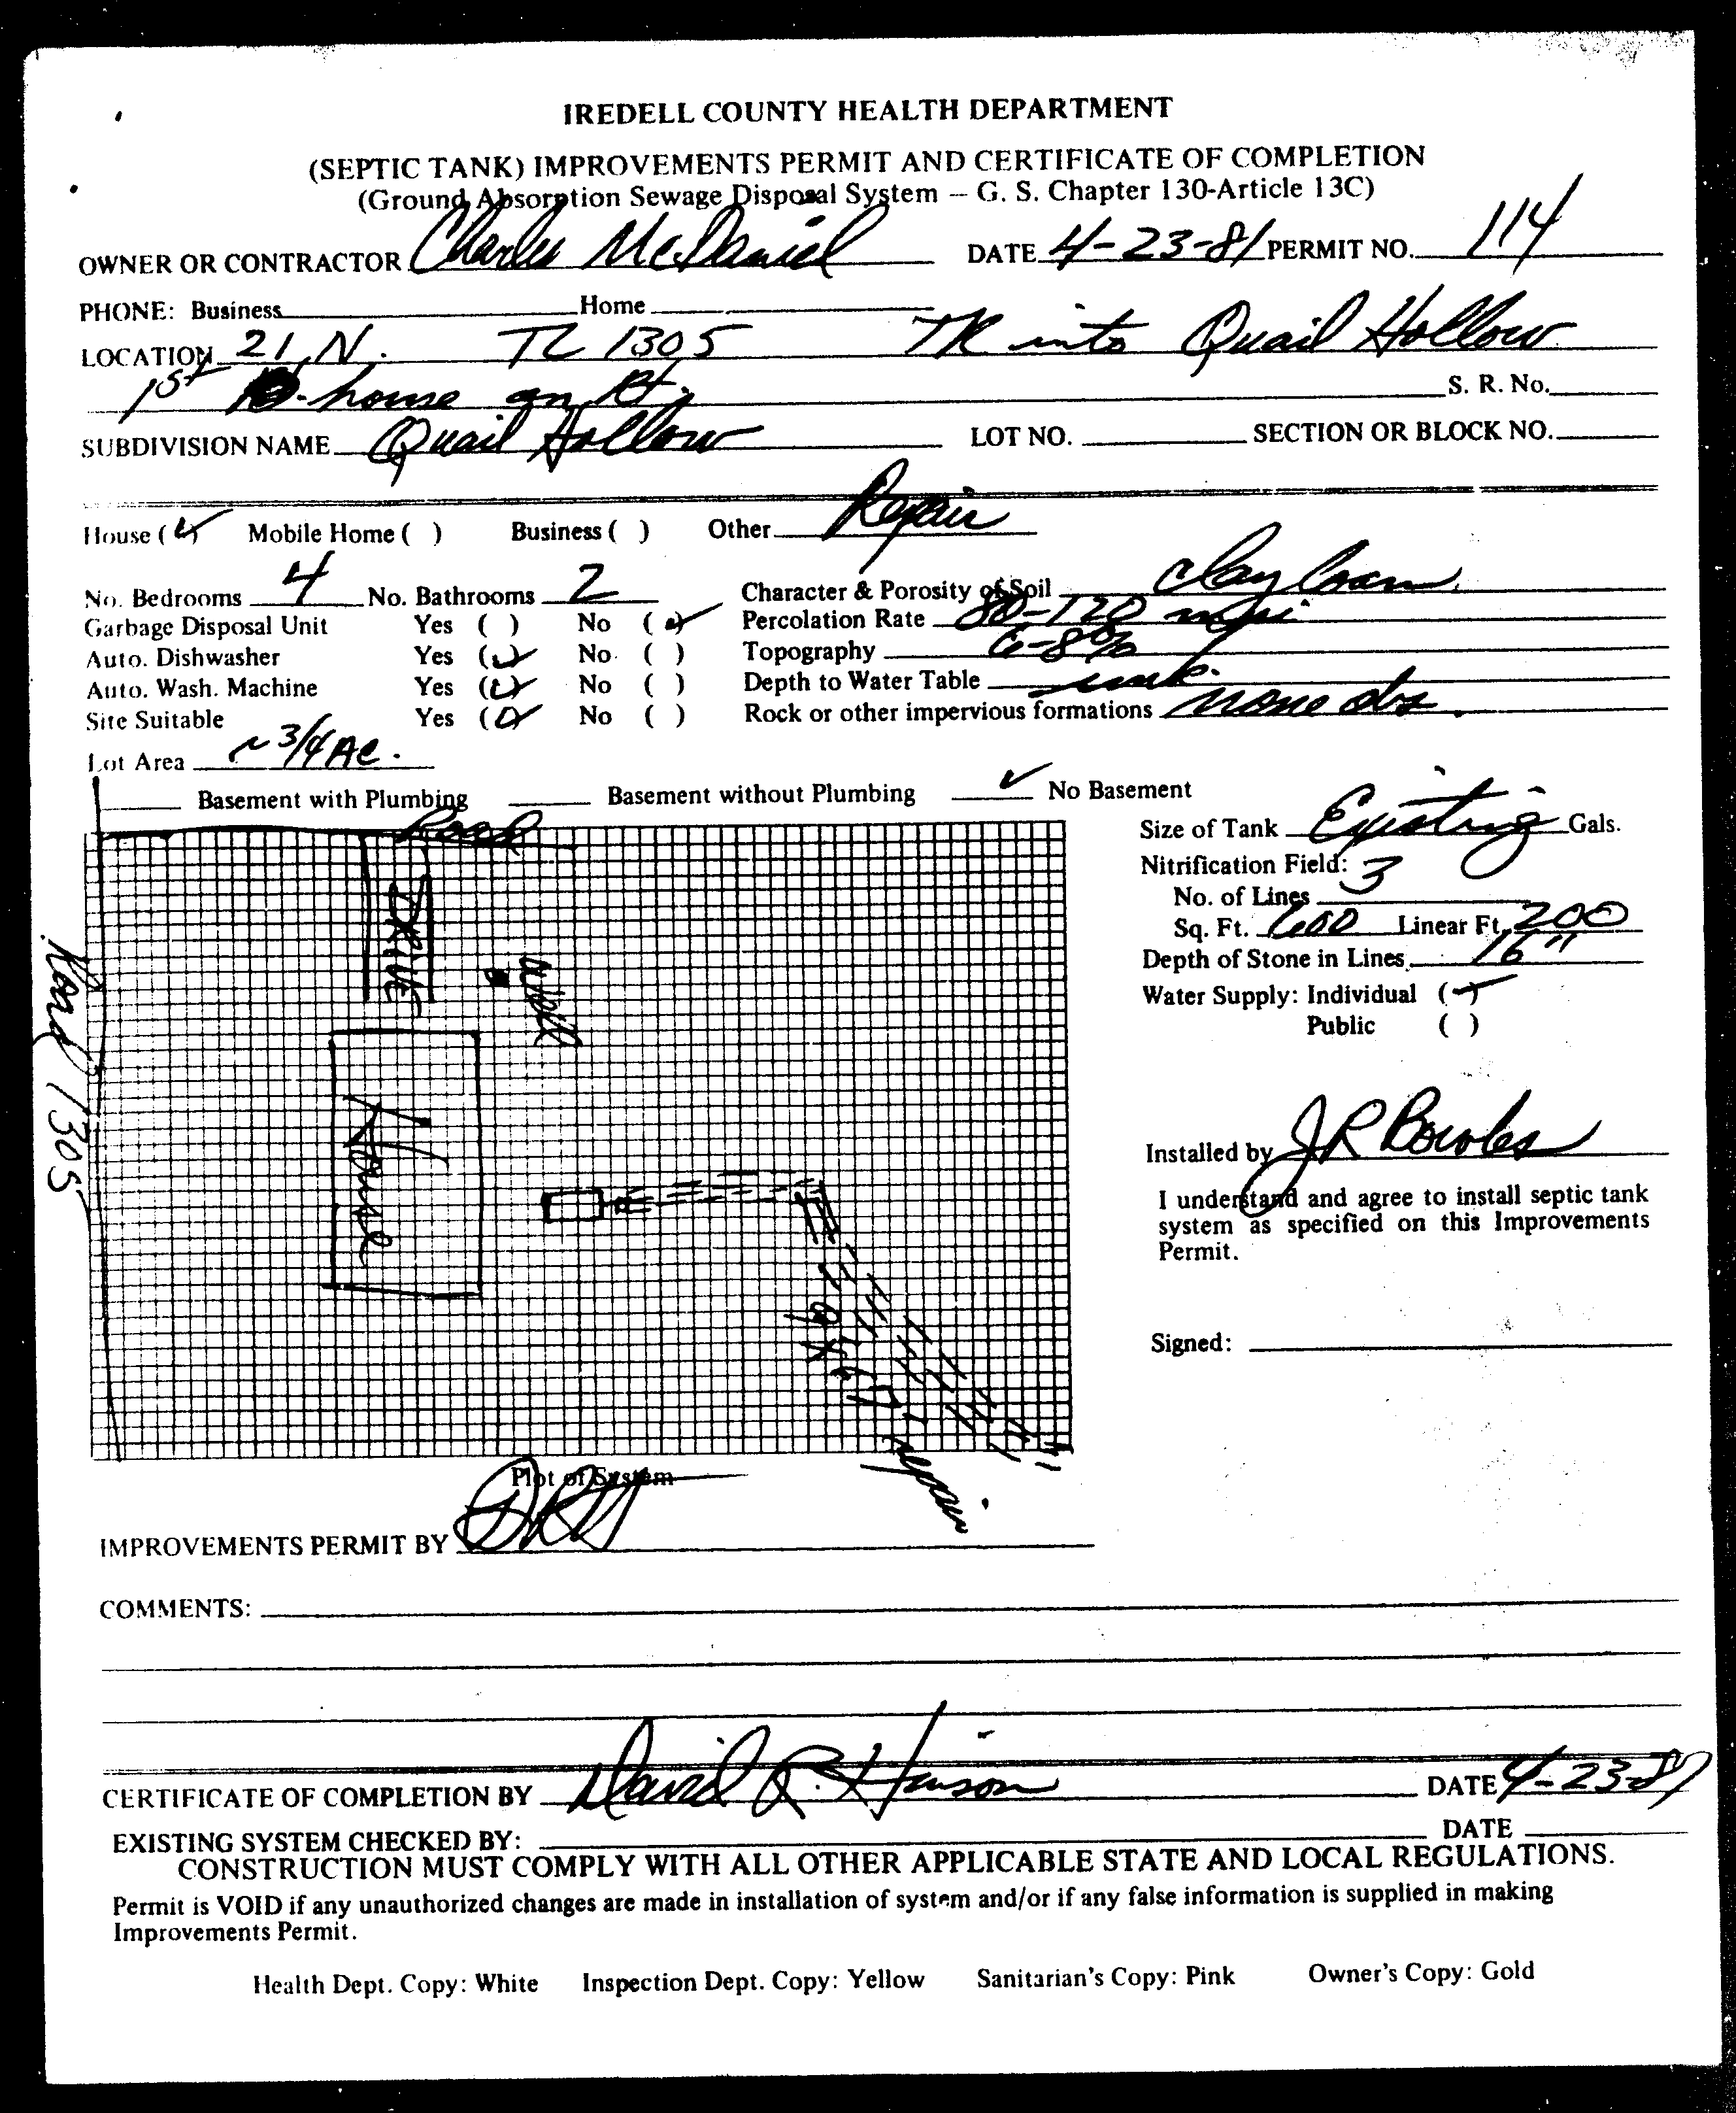 IREDELL COUNTY HEALTH DEPARTMENT
(SEPTIC TANK) IMPROVEMENTS PERMIT AND CERTIFICATE OF COMPLETION
(Ground Absorption Sewage Disposal System – G. S. Chapter 130-Article 13C)
OWNER OR CONTRACTOR Charles McDaniel DATE 4-23-81 PERMIT NO. 114
PHONE: Business Home
LOCATION 21 N. TL 1305 TR into Quail Hollow
1st house on Rt. S. R. No.
SUBDIVISION NAME Quail Hollow LOT NO. SECTION OR BLOCK NO.
House (✓) Mobile Home ( ) Business ( ) Other Repair
No. Bedrooms 4 No. Bathrooms 2 Character & Porosity of Soil Clay loam
Garbage Disposal Unit Yes ( ) No (✓) Percolation Rate 80-120 mpi
Auto. Dishwasher Yes (✓) No ( ) Topography 6-8%
Auto. Wash. Machine Yes (✓) No ( ) Depth to Water Table unk.
Site Suitable Yes (✓) No ( ) Rock or other impervious formations none obs.
Lot Area ~ 3/4 AC.
Basement with Plumbing Basement without Plumbing ✓ No Basement
Road
DRIVE
well
House
Road 1305
repair.
Plot of System
Size of Tank Existing Gals.
Nitrification Field:
No. of Lines 3
Sq. Ft. 600 Linear Ft. 200
Depth of Stone in Lines 16"
Water Supply: Individual (✓)
Public ( )
Installed by JR Bowles
I understand and agree to install septic tank
system as specified on this Improvements
Permit.
Signed:
IMPROVEMENTS PERMIT BY
COMMENTS:
CERTIFICATE OF COMPLETION BY David R. Hinson DATE 4-23-81
EXISTING SYSTEM CHECKED BY: DATE
CONSTRUCTION MUST COMPLY WITH ALL OTHER APPLICABLE STATE AND LOCAL REGULATIONS.
Permit is VOID if any unauthorized changes are made in installation of system and/or if any false information is supplied in making
Improvements Permit.
Health Dept. Copy: White Inspection Dept. Copy: Yellow Sanitarian's Copy: Pink Owner's Copy: Gold